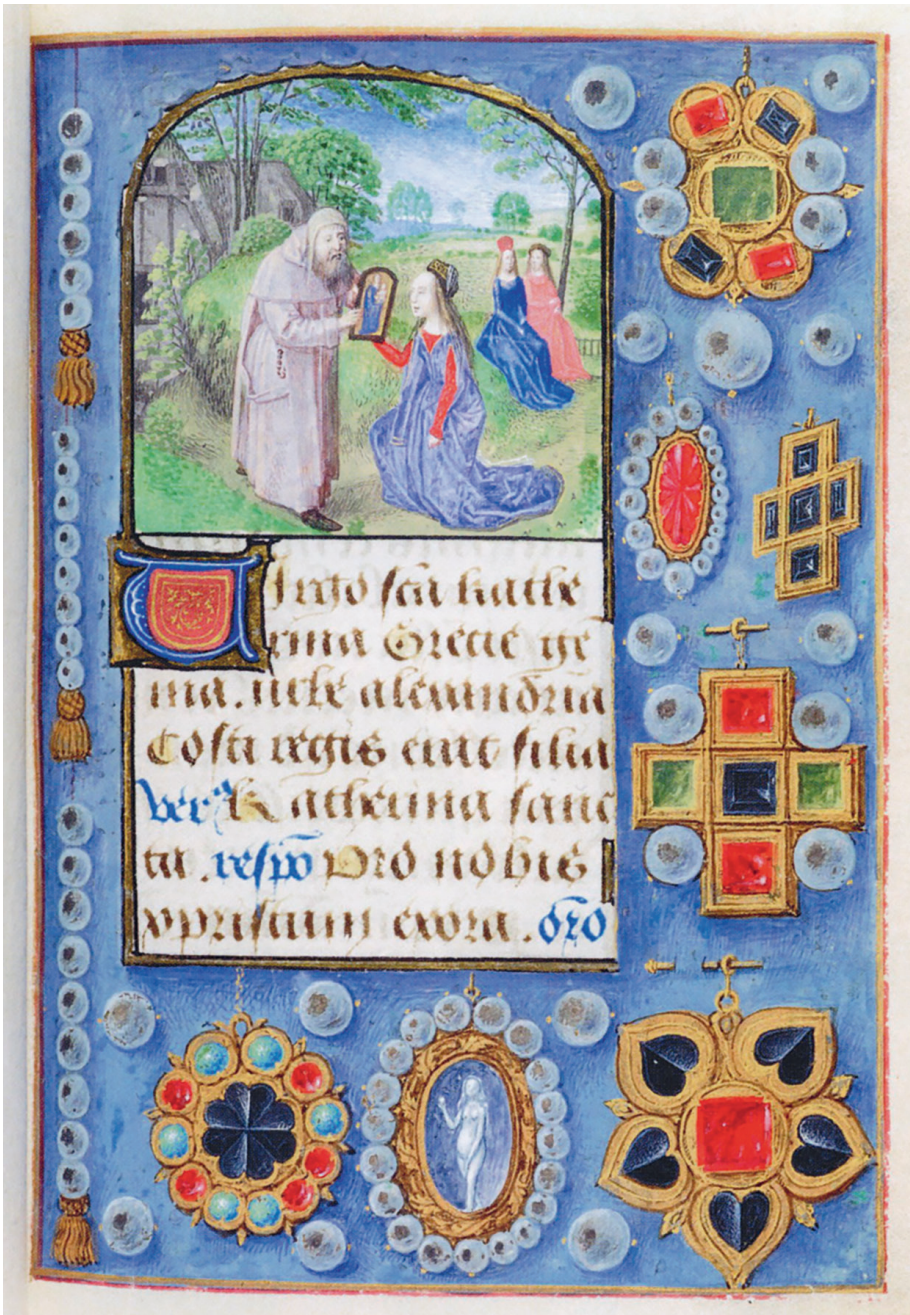 Virgo scā kathe
rina Grecie ge
ma. urbe alexandria
Costi regis erat filia
vers⁹ Katherina sanc
ta. respō Pro nobis
xpristum exora. orō